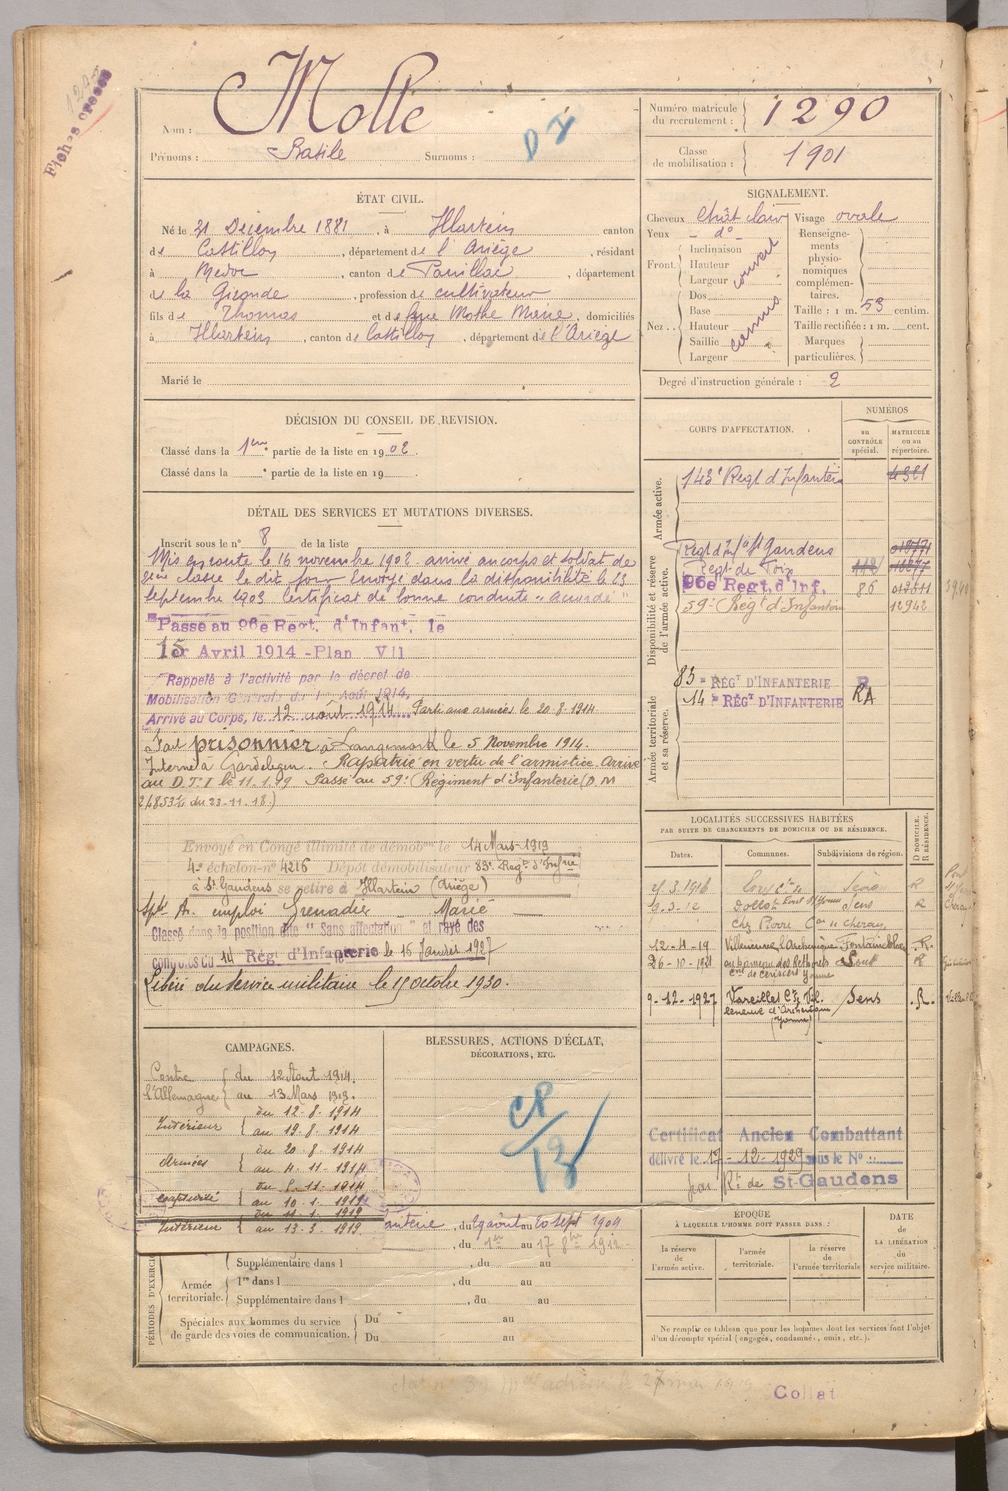 Fiches
Nom : Molle
Prénoms : Basile Surnoms :
Numéro matricule du recrutement : 1290
Classe de mobilisation : 1901
ÉTAT CIVIL.
Né le 21 Décembre 1881, à Illartein canton
de Castillon, département de l'Ariège, résidant
à Médoc, canton de Pauillac, département
de la Gironde, profession de cultivateur
fils de Thomas et de Mothe Marie, domiciliés
à Illartein, canton de Castillon, département de l'Ariège
Marié le
SIGNALEMENT.
Cheveux chât clair
Yeux d°
Front. Inclinaison
Hauteur couvert
Largeur
Nez.. Dos
Base
Hauteur camus
Saillie
Largeur
Visage ovale
Renseignements physionomiques complémentaires.
Taille : 1 m. 53 centim.
Taille rectifiée : 1 m. cent.
Marques particulières.
Degré d'instruction générale : 2
DÉCISION DU CONSEIL DE REVISION.
Classé dans la 1ère partie de la liste en 1902.
Classé dans la e partie de la liste en 19
DÉTAIL DES SERVICES ET MUTATIONS DIVERSES.
Inscrit sous le n° 8 de la liste
Mis en route le 16 novembre 1902 arrivé au corps et soldat de
2ème classe le dit jour Envoyé dans la disponibilité le 23
septembre 1903 Certificat de bonne conduite "accordé"
Passé au 96e Regt. d'Infant. le
1er Avril 1914 - Plan VII
Rappelé à l'activité par le décret de
Mobilisation Générale du 1er Août 1914.
Arrivé au Corps, le 12 août 1914. Parti aux armées le 20-8-1914
Fait prisonnier à Langemark le 5 Novembre 1914.
Interné à Gardelegen. Rapatrié en vertu de l'armistice. Arrivé
au D.T.I le 11.1.19 Passé au 59e Régiment d'Infanterie (D.M
du 23-11-18.)
Envoyé en Congé illimité de démobon le 14 Mars 1919
4e échelon n° 4216 Dépôt démobilisateur 83e Regt d'Infrie
à St Gaudens se retire à Illartein (Ariège)
emploi Grenadier - Marié
Classé dans la position dite "Sans affectation" et rayé des
contrôles du 14 Régt d'Infanterie le 15 Janvier 1927
Libéré du service militaire le 15 octobre 1930.
CORPS D'AFFECTATION.
NUMÉROS
au CONTRÔLE spécial.
MATRICULE ou au répertoire.
Armée active.
143e Regt d'Infanterie 4321
Disponibilité et réserve de l'armée active.
Regt d'Infie St Gaudens
Regt de Foix
96e Regt. d'Inf. 86
59e Regt d'Infanterie 12942
Armée territoriale et sa réserve.
83e RÉGT D'INFANTERIE
14e RÉGT D'INFANTERIE RA
LOCALITÉS SUCCESSIVES HABITÉES
PAR SUITE DE CHANGEMENTS DE DOMICILE OU DE RÉSIDENCE.
Dates. Communes. Subdivisions de région. D DOMICILE. R RÉSIDENCE.
Sens R
chez Pierre
12-4-19 Villeneuve l'Archevêque Fontainebleau R.
26-10-1921 au hameau des
Cne de Cerisiers Yonne R
9-12-1927 Vareilles Con Vil- Sens .R.
leneuve l'Archevêque
(Yonne)
CAMPAGNES.
Contre l'Allemagne du 12 Aout 1914.
au 13 Mars 1919.
Intérieur du 12-8-1914
au 19-8-1914
Armées du 20-8-1914
au 4-11-1914
Captivité du 5-11-1914
au 10-1-1919
Intérieur du 11-1-1919
au 13-3-1919
BLESSURES, ACTIONS D'ÉCLAT,
DÉCORATIONS, ETC.
CP
13
Certificat Ancien Combattant
délivré le 17-12-1929 sous le N°
par Rt de St-Gaudens
du 29 août au 20 sept 1909
, du 1er au 17 8bre 1912
PÉRIODES D'EXERCI
Armée territoriale.
Supplémentaire dans l , du au
1re dans l , du au
Supplémentaire dans l , du au
Spéciales aux hommes du service
de garde des voies de communication.
Du au
Du au
ÉPOQUE
À LAQUELLE L'HOMME DOIT PASSER DANS :
la réserve de l'armée active.
l'armée territoriale.
la réserve de l'armée territoriale
DATE
de
LA LIBÉRATION
du
service militaire.
Ne remplir ce tableau que pour les hommes dont les services font l'objet
d'un décompte spécial (engagés, condamnés, omis, etc.).
Collat